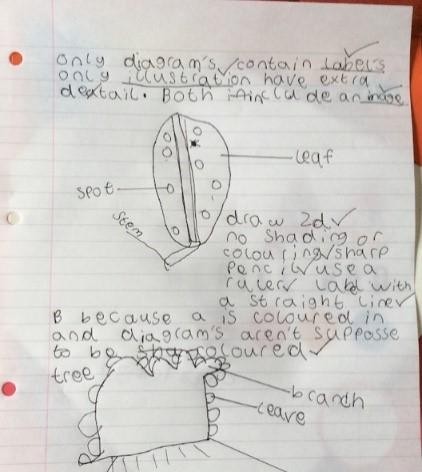 only diagram's contain labels
only illustration have extra
deatail. Both include an image
leaf
spot
stem
draw 2d
no shading or
colouring sharp
pencil use a
ruler label with
a straight line
B because a is coloured in
and diagram's aren't supposse
to be coloured
tree
branch
leave